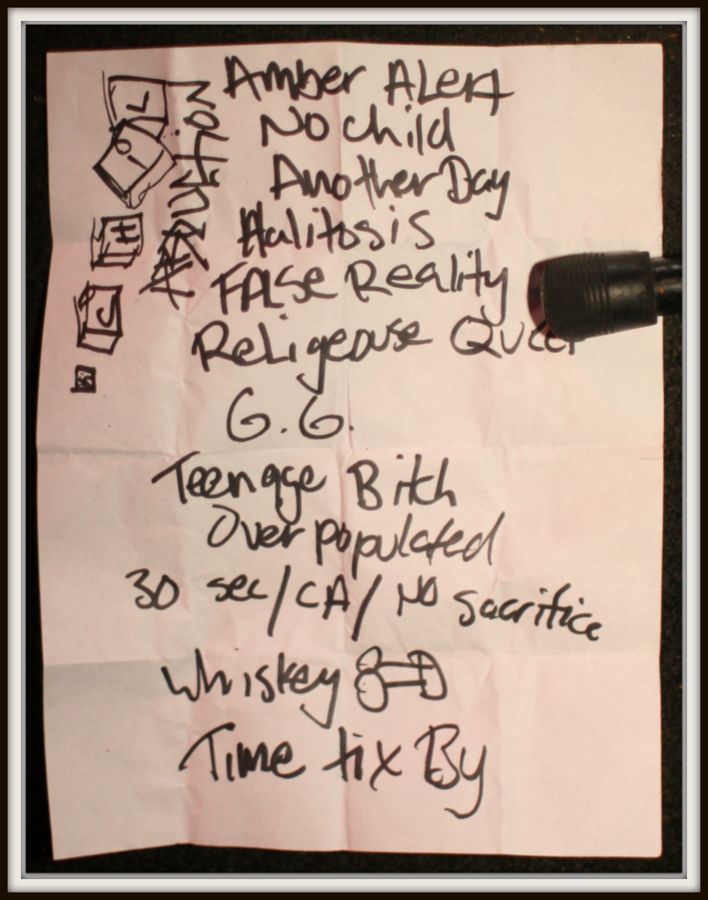 Amber Alert
No Child
Another Day
Halitosis
False Reality
Religeouse
G.G.
Teenage Bitch
Over populated
30 sec/CA/No Sacrifice
Whiskey
Time tix By
L
H
C